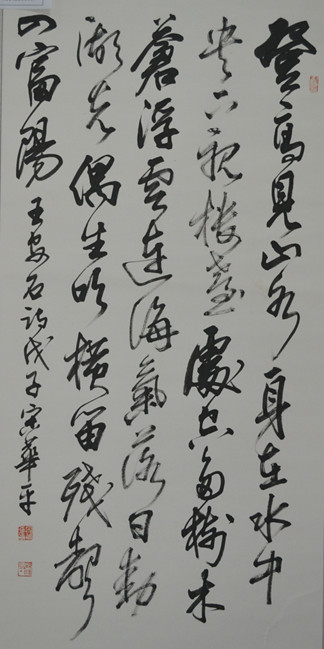 登高見山水身在水中
央下視樓臺處空多樹木
蒼浮雲連海氣落日動
湖光偶坐吹橫笛殘聲
入富陽 王安石詩戊子宋華平